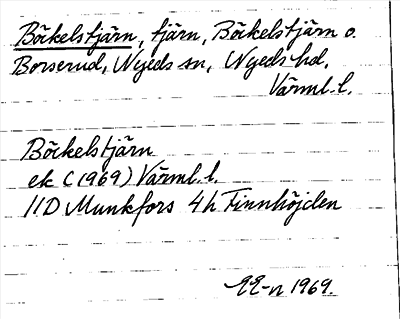 Böckelstjärn, tjärn, Böckelstjärn o.
Borserud, Nyeds sn, Nyeds hd,
Värml. l.
Böckelstjärn
ek C (1969) Värml. l.
11D Munkfors 4h Finnhöjden
1969.